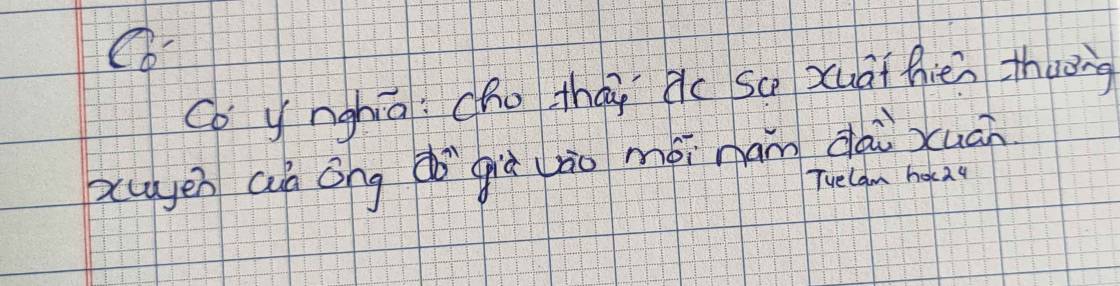 Có
Có ý nghĩa: cho thấy đc sự xuất hiện thường
xuyên của ông đồ già vào mỗi năm đầu xuân.
Tuelam hoc24